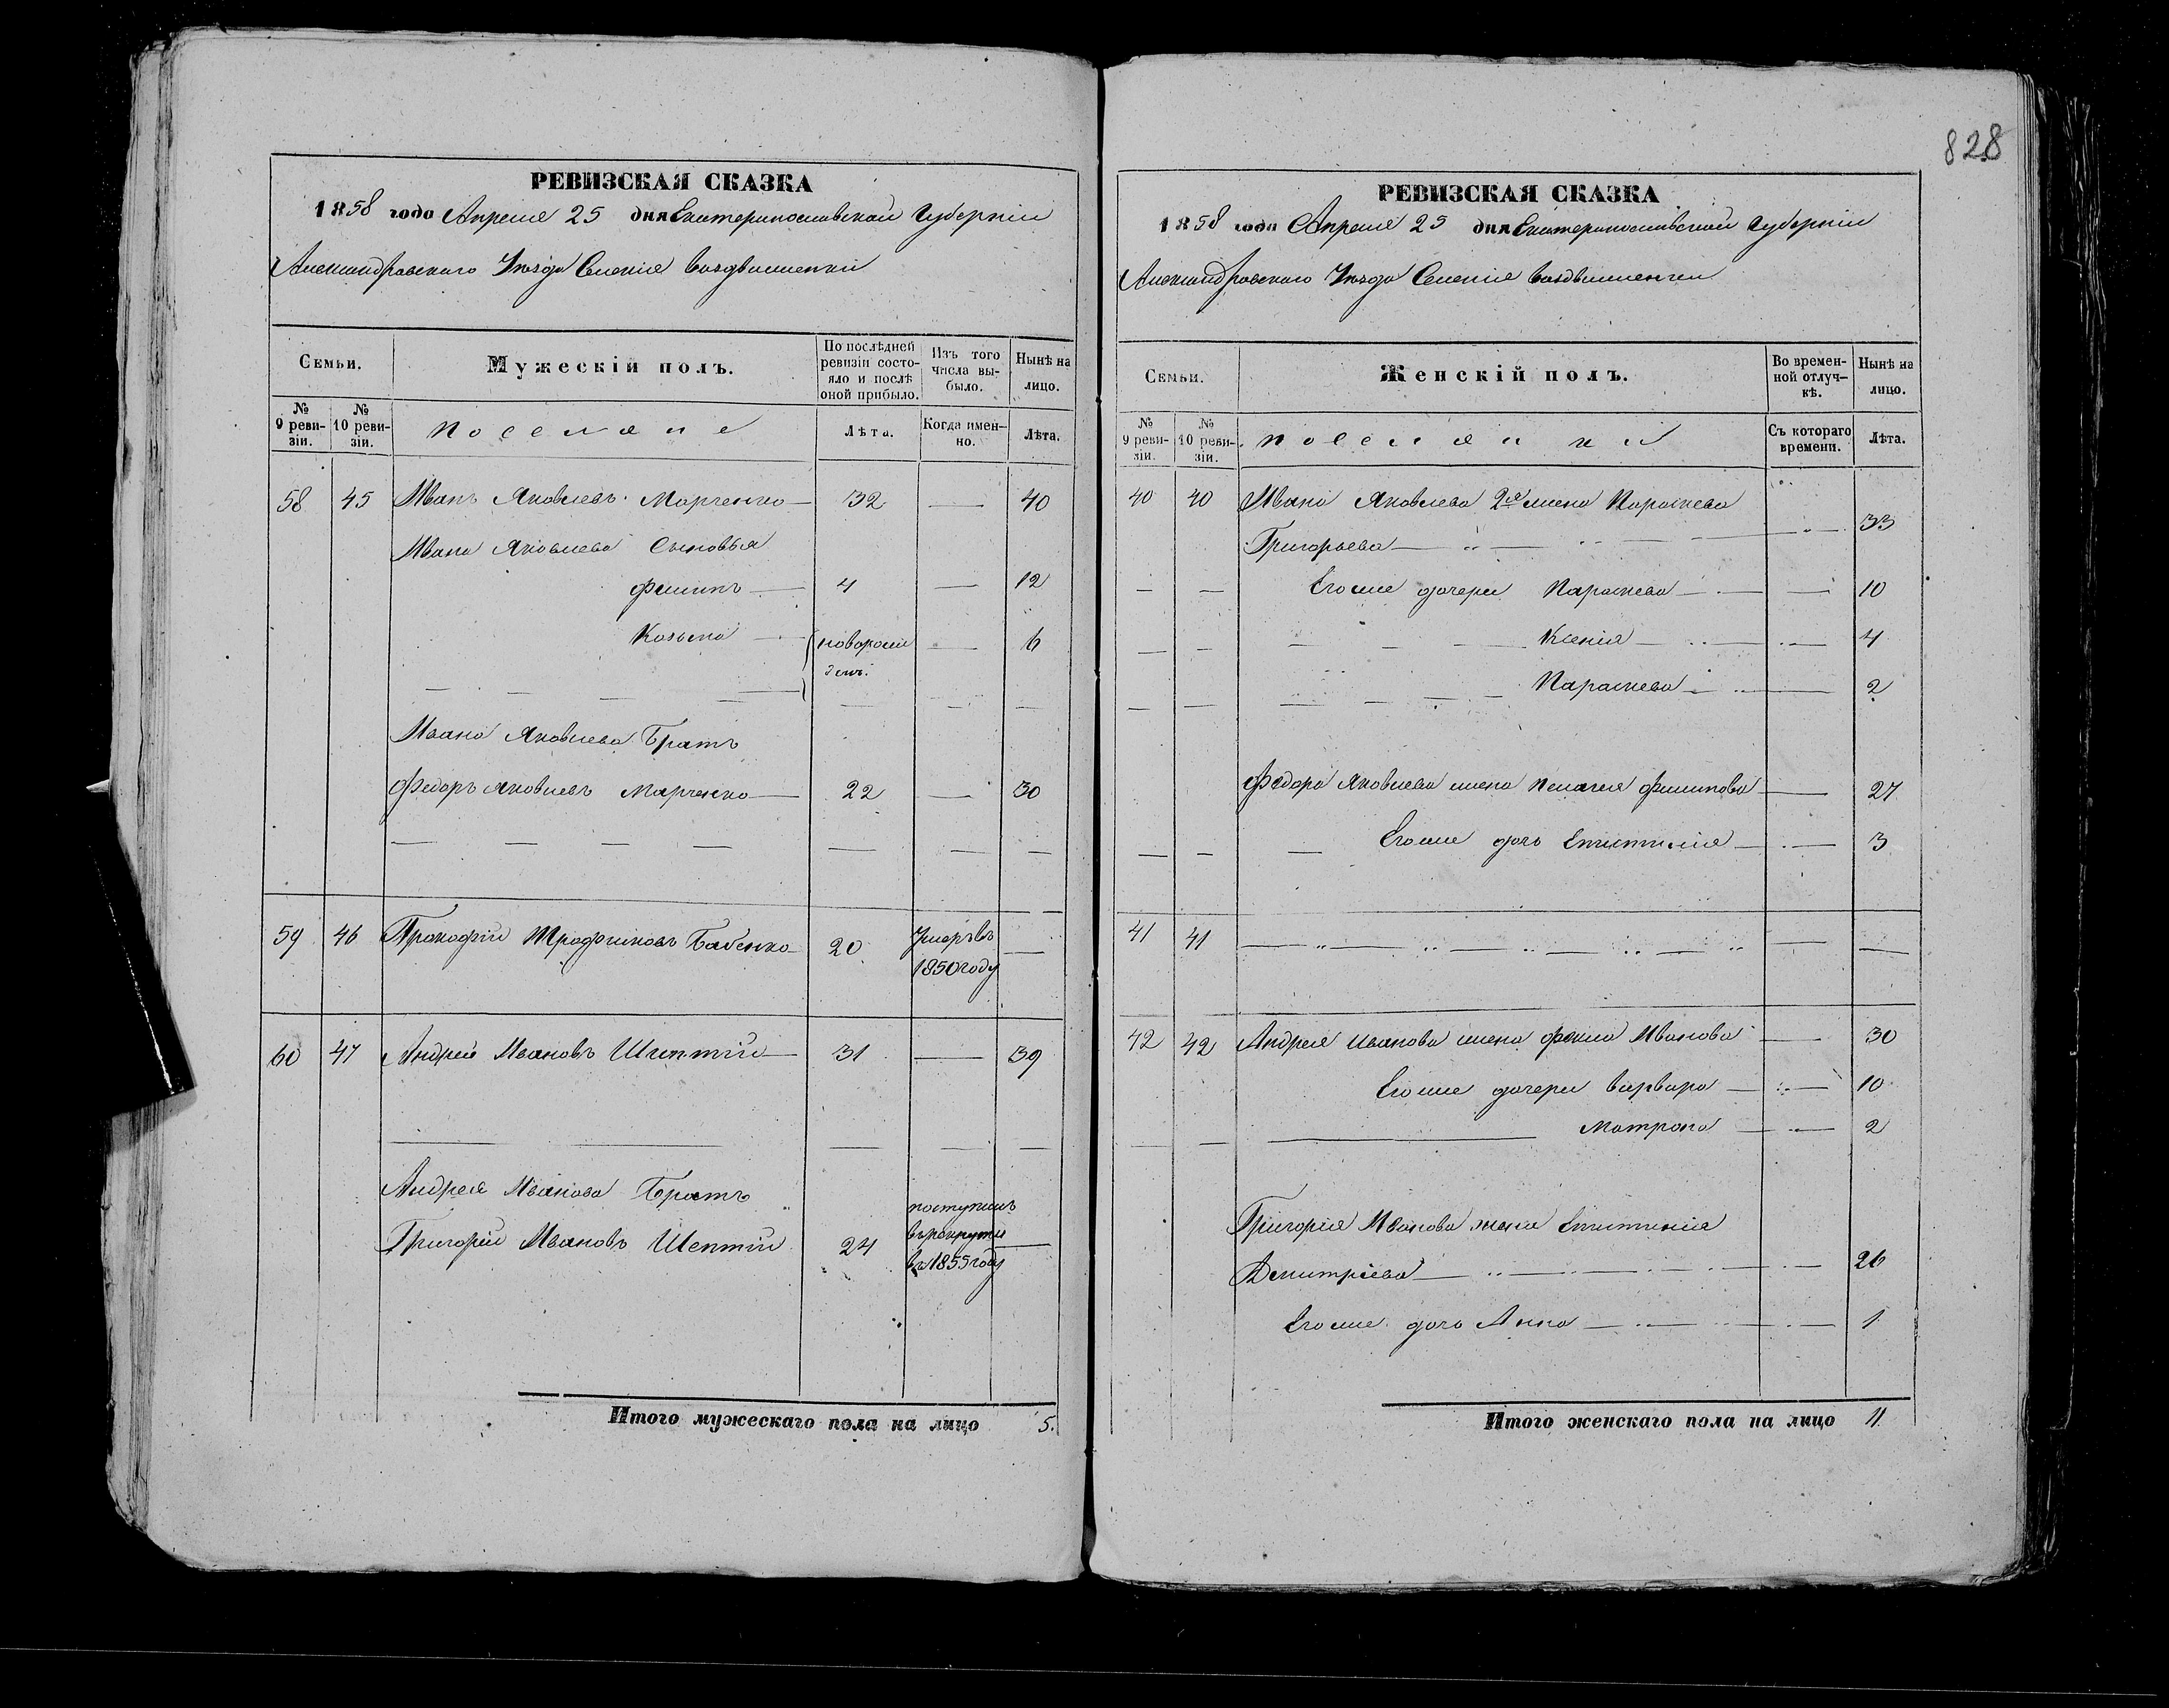 828
РЕВИЗСКАЯ СКАЗКА
1858 года Апреля 25 дня Екатеринославской Губерніи
Александровскаго Уезда Селенія Воздвиженки
Семьи.
Мужескій полъ.
По послѣдней ревизіи состо-
яло и послѣ оной прибыло.
Изъ того числа вы-
было.
Нынѣ на лицо.
№ 9 реви-
зіи.
№ 10 реви-
зіи.
Поселяне
Лѣта.
Когда имен-
но.
Лѣта.
58 45 Иванъ Яковлевъ Марченко — 32 — 40
Ивана Яковлева Сыновья
Филипъ — 4 — 12
Козьма — новорож
денъ. — 6
Ивана Яковлева Братъ
Федоръ Яковлевъ Марченко — 22 — 30
59 46 Прокофій Трофимовъ Бабенко 20 Умеръ въ —
1850 году
60 47 Андрей Ивановъ Шептій — 31 — 39
Андрея Иванова Братъ
Григорій Ивановъ Шептій 24 поступилъ
въ рекруты —
въ 1855 году
Итого мужескаго пола на лицо 5.
РЕВИЗСКАЯ СКАЗКА
1858 года Апреля 25 дня Екатеринославской Губерніи
Александровскаго Уезда Селенія Воздвиженки
Семьи.
Женскій полъ.
Во времен-
ной отлуч-
кѣ.
Нынѣ на лицо.
№ 9 реви-
зіи.
№ 10 реви-
зіи.
поселянки
Съ котораго времени.
Лѣта.
40 40 Ивана Яковлева 2я жена Параскева
Григорьева — 33
Его же дочери Параскева — 10
Ксенія — 4
Параскева — 2
Федора Яковлева жена Пелагея Филипова — 27
Его же дочь Епистимія — 3
41 41 —
42 42 Андрея Иванова жена Фекла Иванова — 30
Его же дочери Варвара — 10
Матрона — 2
Григорія Иванова жена Епистимія
Дмитріева — 26
Его же дочь Анна — 1
Итого женскаго пола на лицо 11.